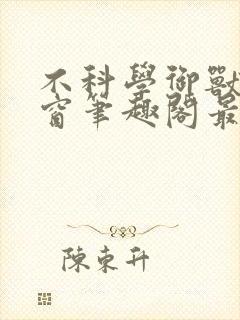 不科學御獸
窗筆趣閣最
陳東升